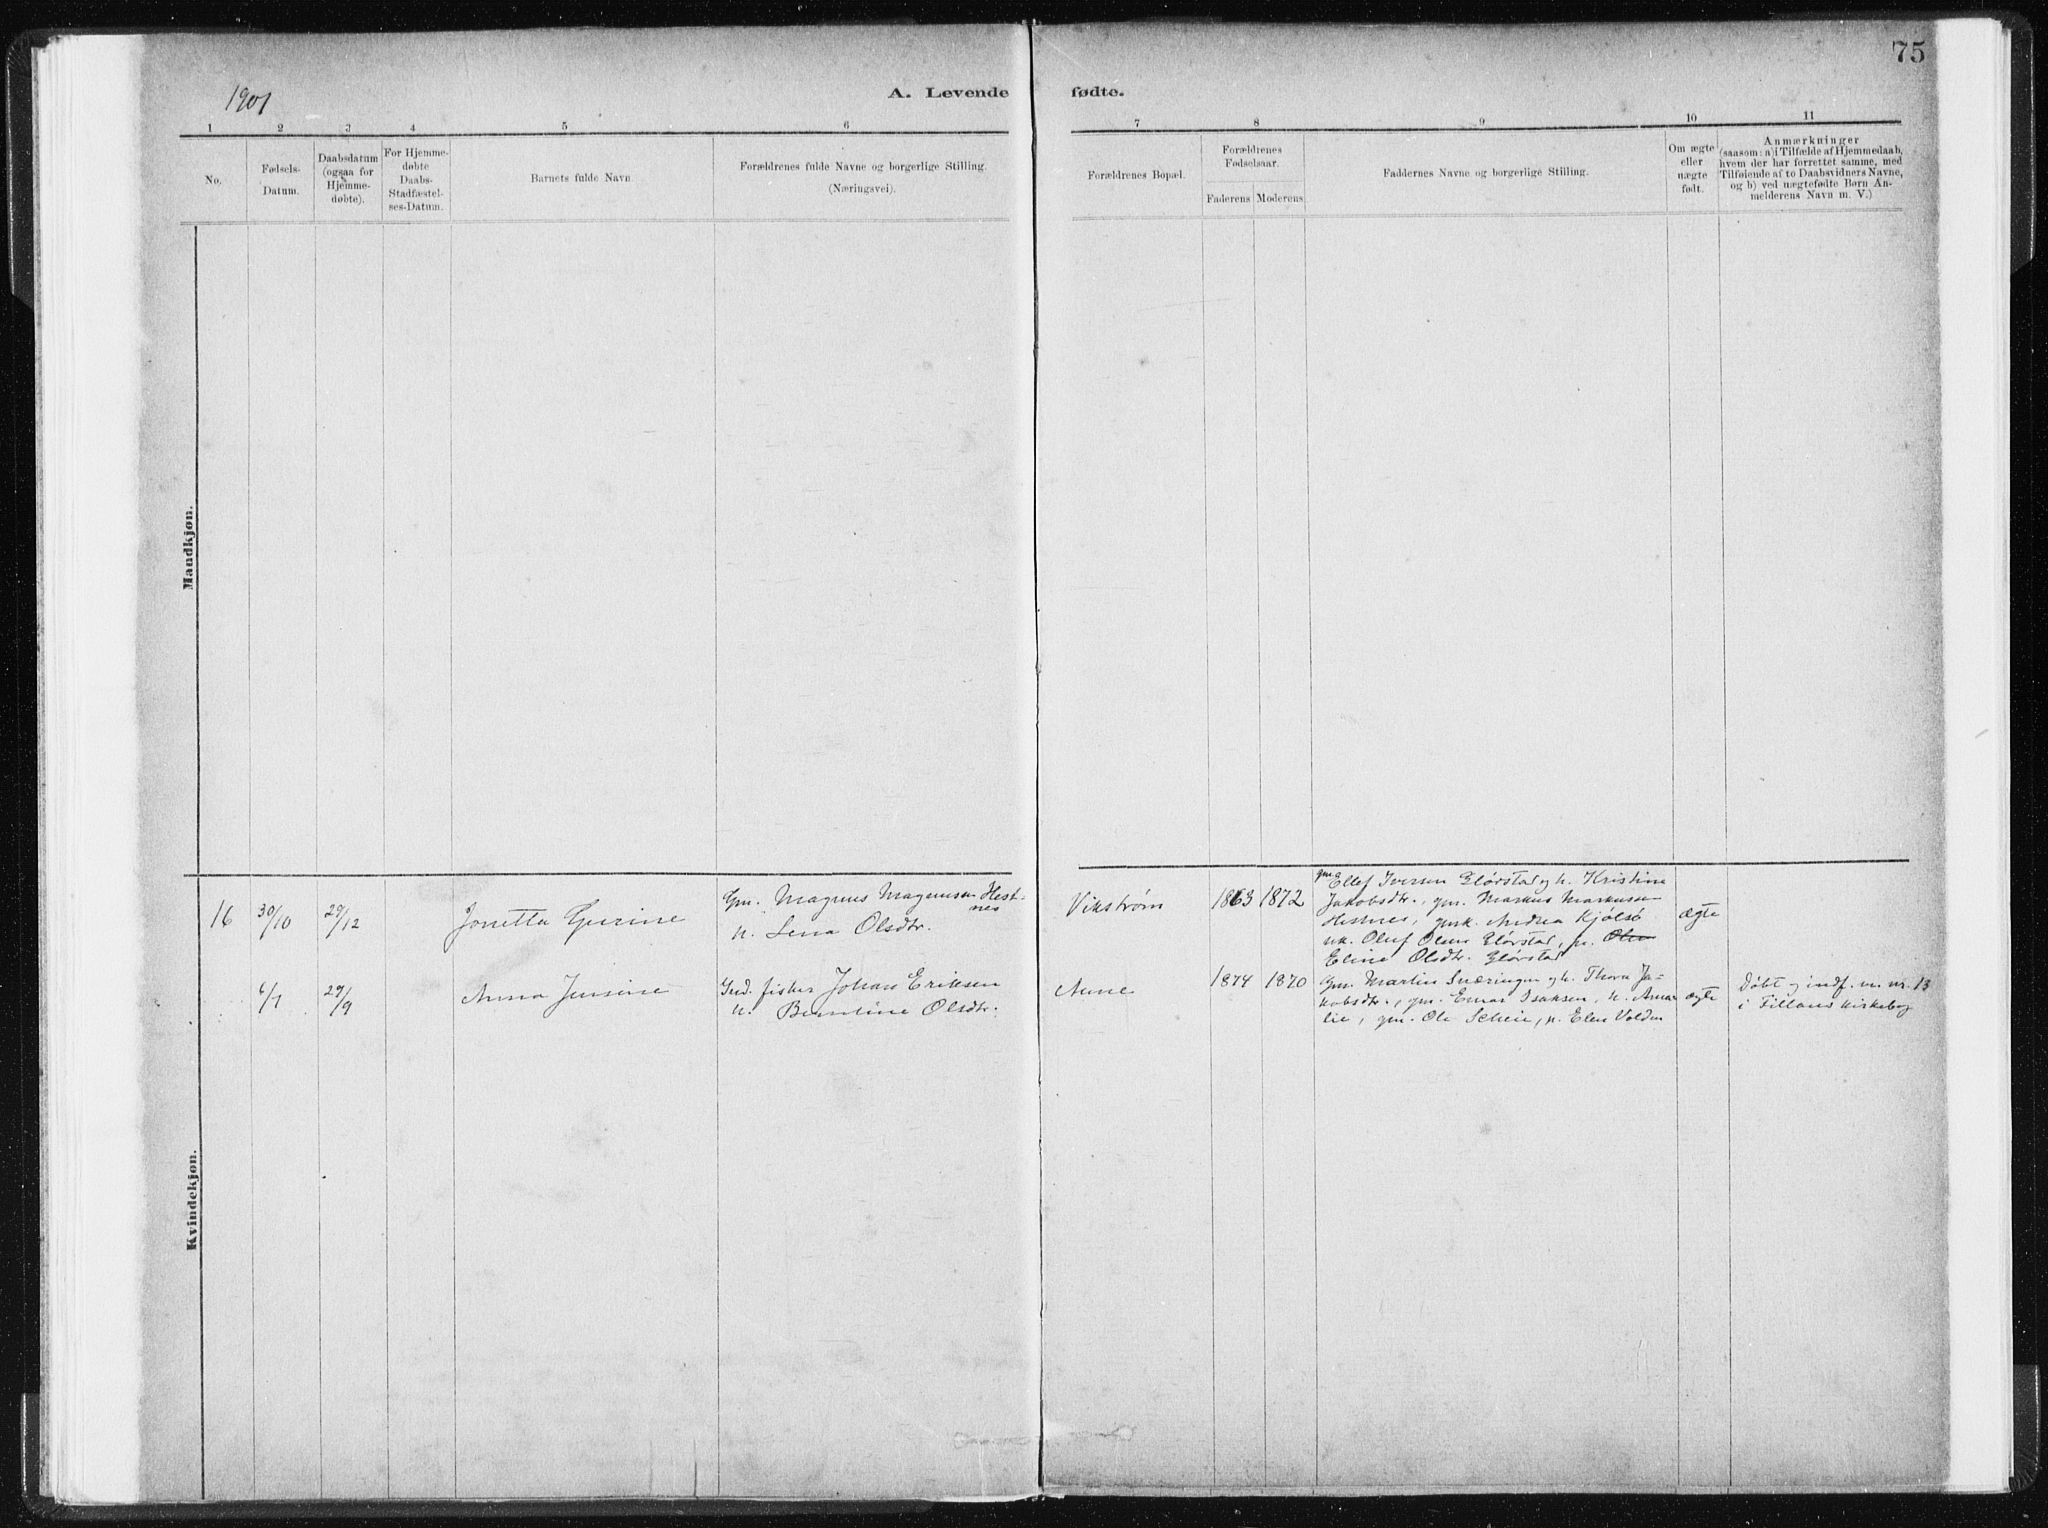 75
1901
A. Levende fødte.
1 2 3 4 5 6 7 8 9 10 11
No.
Fødsels-
Datum.
Daabsdatum
(ogsaa for
Hjemme-
døbte).
For Hjemme-
døbte
Daabs-
Stadfæstel-
ses-Datum.
Barnets fulde Navn.
Forældrenes fulde Navne og borgerlige Stilling.
(Næringsvei).
Forældrenes Bopæl.
Forældrenes
Fødselsaar.
Faderens Moderens
Faddernes Navne og borgerlige Stilling.
Om ægte
eller
uægte
født.
Anmærkninger
(saasom: a) i Tilfælde af Hjemmedaab,
hvem der har forrettet samme, med
Tilføiende af to Daabsvidners Navne,
og b) ved uægtefødte Børn An-
melderens Navn m. V.)
Mandkjøn.
Kvindekjøn.
16 30/10 29/12 Jonetta Gurine
Gm. Magnus Magnussen Hest-
nes
h. Lena Olsdtr.
Vikstrøm 1863 1872
Ellef Iversen Glørstad og h. Kristine
Jakobsdtr., gm. Markus Markussen
Hestnes, Andrea Kjølsø
uk. Oluf Olsen Glørstad, p. Olen
Eline Olsdtr. Glørstad
ægte
6/7 29/9 Anna Jensine
Ind. fisker Johan Eriksen
h. Berntine Olsdtr.
Aune 1874 1870
Gm. Martin Snæringen og h. Thora Ja-
kobsdtr., gm. Einar Isaksen, h. Ama-
lie, gm. Ole Scheie, p. Elen Volden
ægte
Døbt og indf. u. nr. 13
i Fillans kirkebog